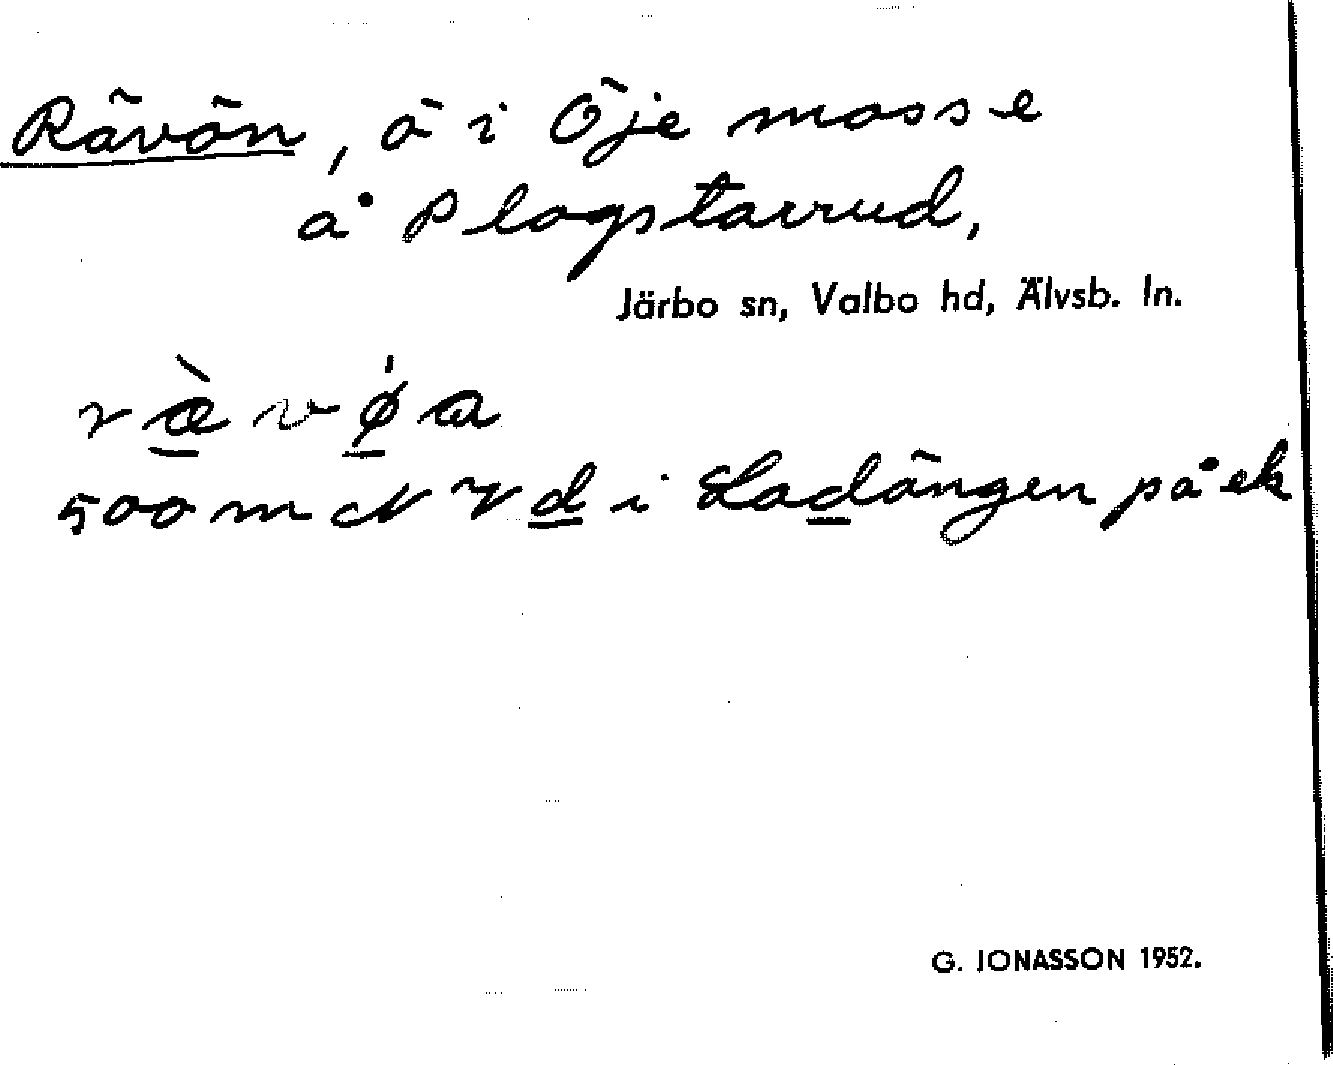 Rävön, ö i Öje mosse
å Plogstarrud,
Järbo sn, Valbo hd, Älvsb. ln.
r æ̀ v ǿ a
500 m N V d i Ladängen på ek
G. JONASSON 1952.